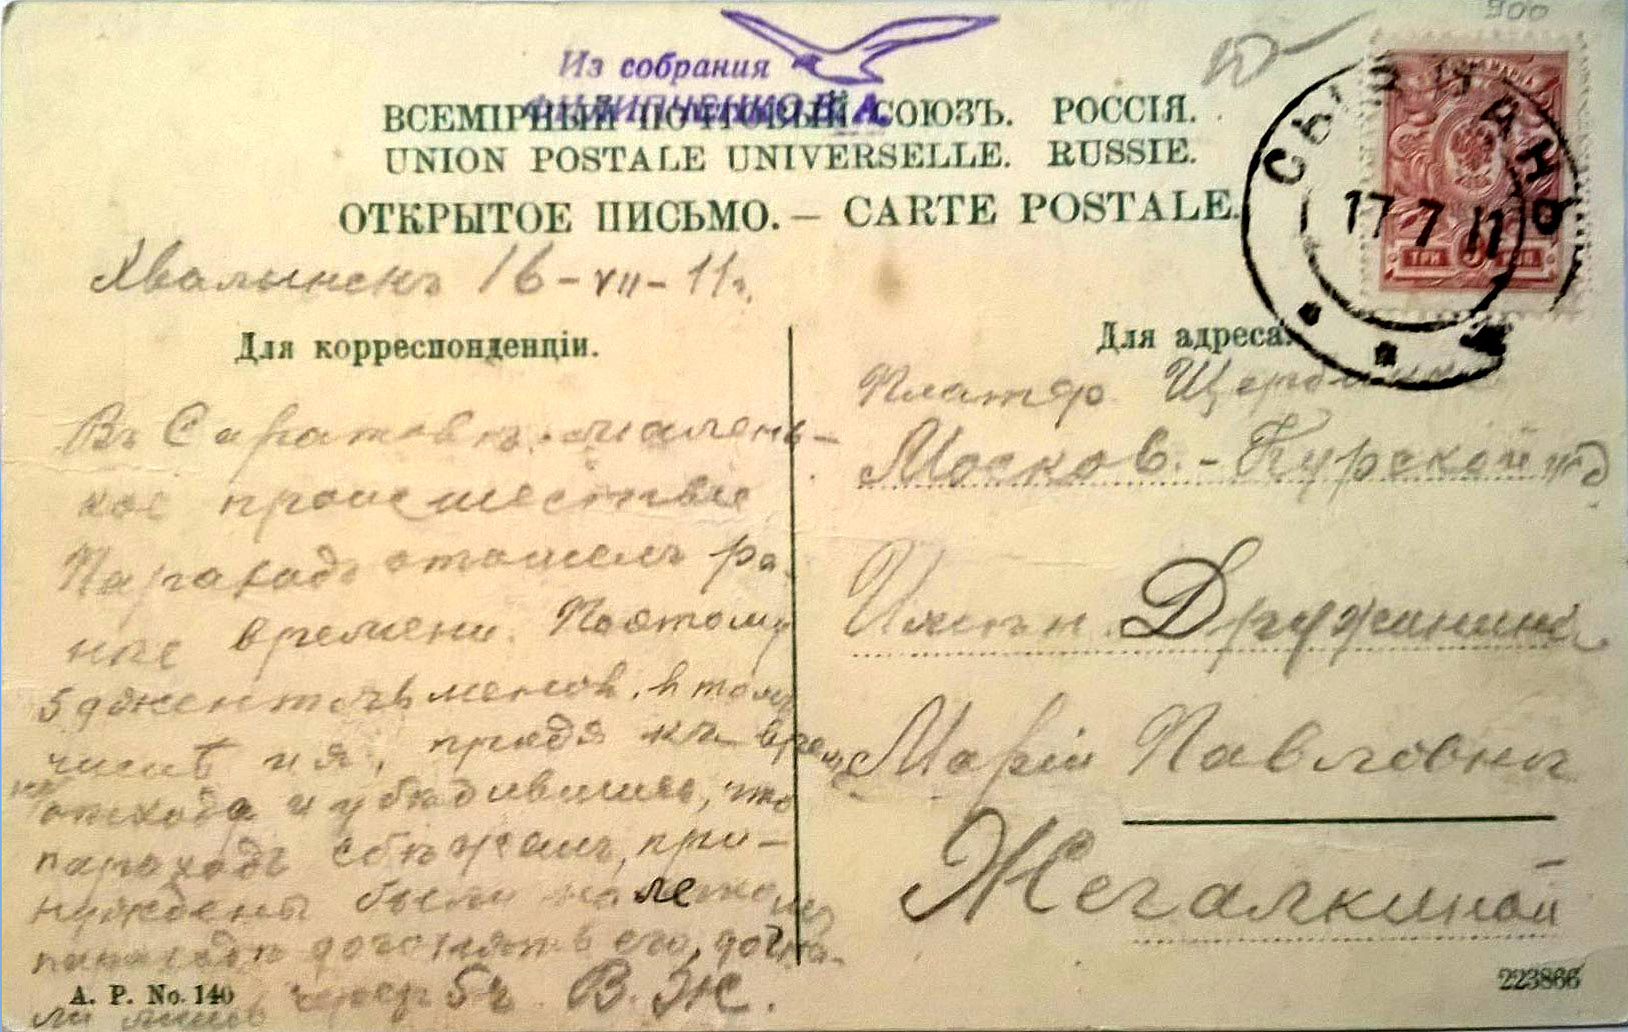 900
Из собрания
ФИЛИПЧЕНКО В.А.
ВСЕМІРНЫЙ ПОЧТОВЫЙ СОЮЗЪ. РОССІЯ.
UNION POSTALE UNIVERSELLE. RUSSIE.
ОТКРЫТОЕ ПИСЬМО. — CARTE POSTALE.
17 7 11
ТРИ 3 КОП
Хвалынскъ 16-VII-11г.
Для корреспонденціи.
Въ Саратовѣ малень-
кое происшествіе
Пароходъ отошелъ ра-
нѣе времени. Поэтому
5 джентельменов, в том
числѣ и я, придя къ врем.
отхода и убѣдившись, что
пароходъ сбѣжалъ, при-
нуждены были на легком
пароходѣ догонять его, догна-
ли лишь через 5ч. В. Ж.
А. Р. No. 140
Для адреса.
Платф. Щербинка
Москов.-Курской жд
Имѣн. Дружинина
Маріи Павловнѣ
Жегалкиной
223866